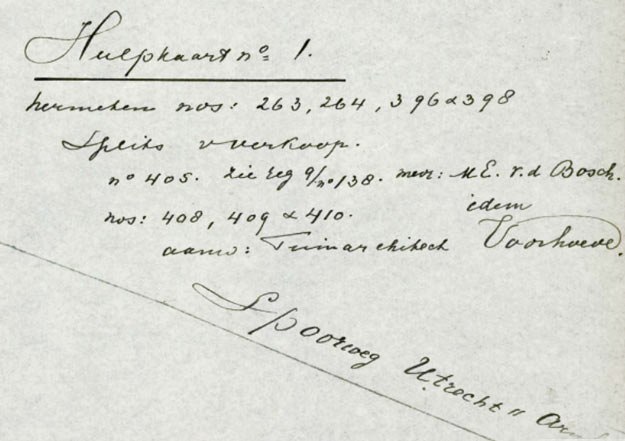 Hulpkaart no 1.
hermeten nos: 263, 264, 396 & 398
Splits v verkoop.
no 405. Zie reg 9/no 138. mevr: M E. v. d Bosch.
nos: 408, 409 & 410. idem
aanw: Tuinarchitect Voorhoeve.
Spoorweg Utrecht "